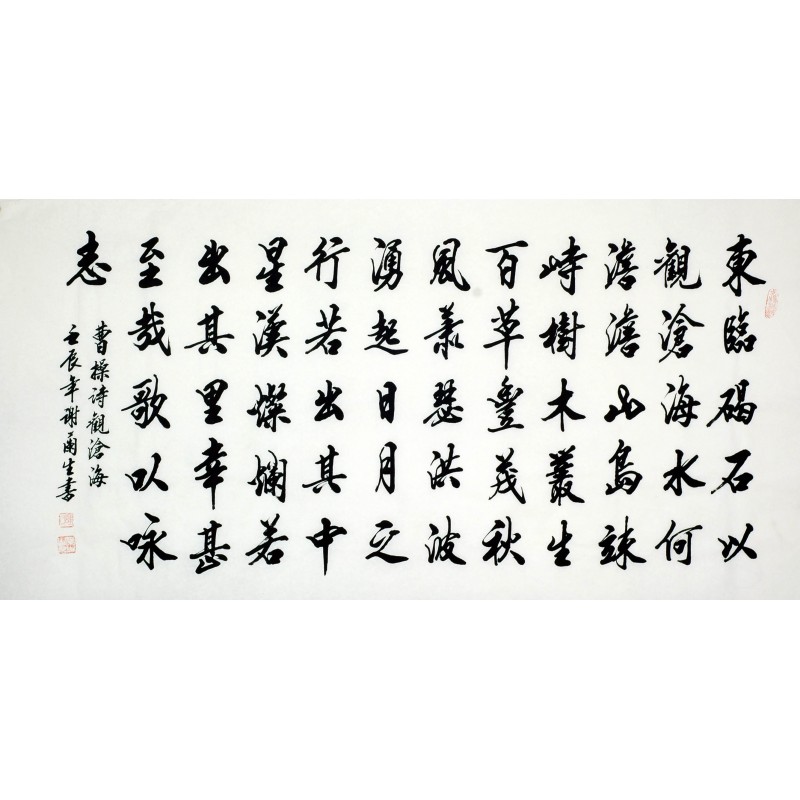 東臨碣石以
觀滄海水何
澹澹山島竦
峙樹木叢生
百草豐茂秋
風蕭瑟洪波
湧起日月之
行若出其中
星漢燦爛若
出其里幸甚
至哉歌以咏
志
曹操詩觀滄海
壬辰年謝爾生書